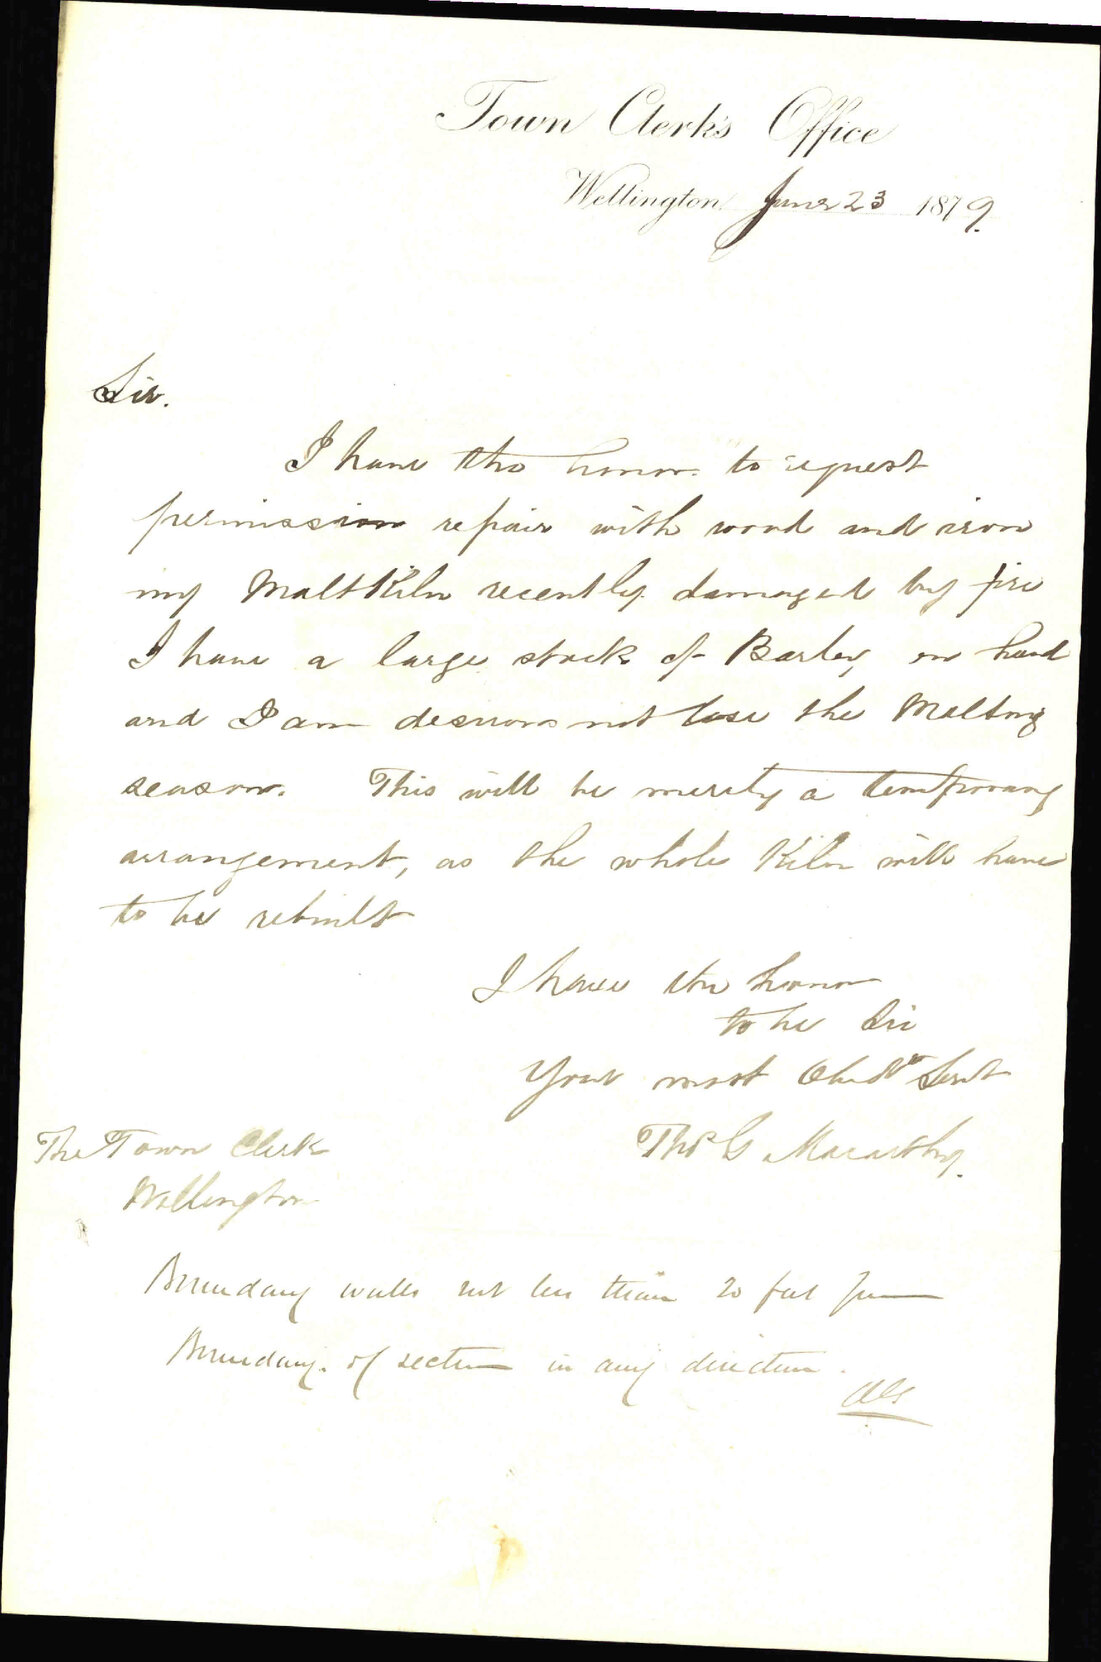 Town Clerk's Office
Wellington June 23 1879.
Sir.
I have the honor to request
permission repair with wood and iron
my Malt Kiln recently damaged by fire
I have a large stock of Barley on hand
and I am desirous not lose the Malting
season. This will be merely a temporary
arrangement, as the whole Kiln will have
to be rebuilt
I have the honor
to be Sir
Your most Obedt Servt
Thos G Macarthy.
The Town Clerk
Wellington
Boundary walls not less than 20 feet from
Boundary of section in any direction.